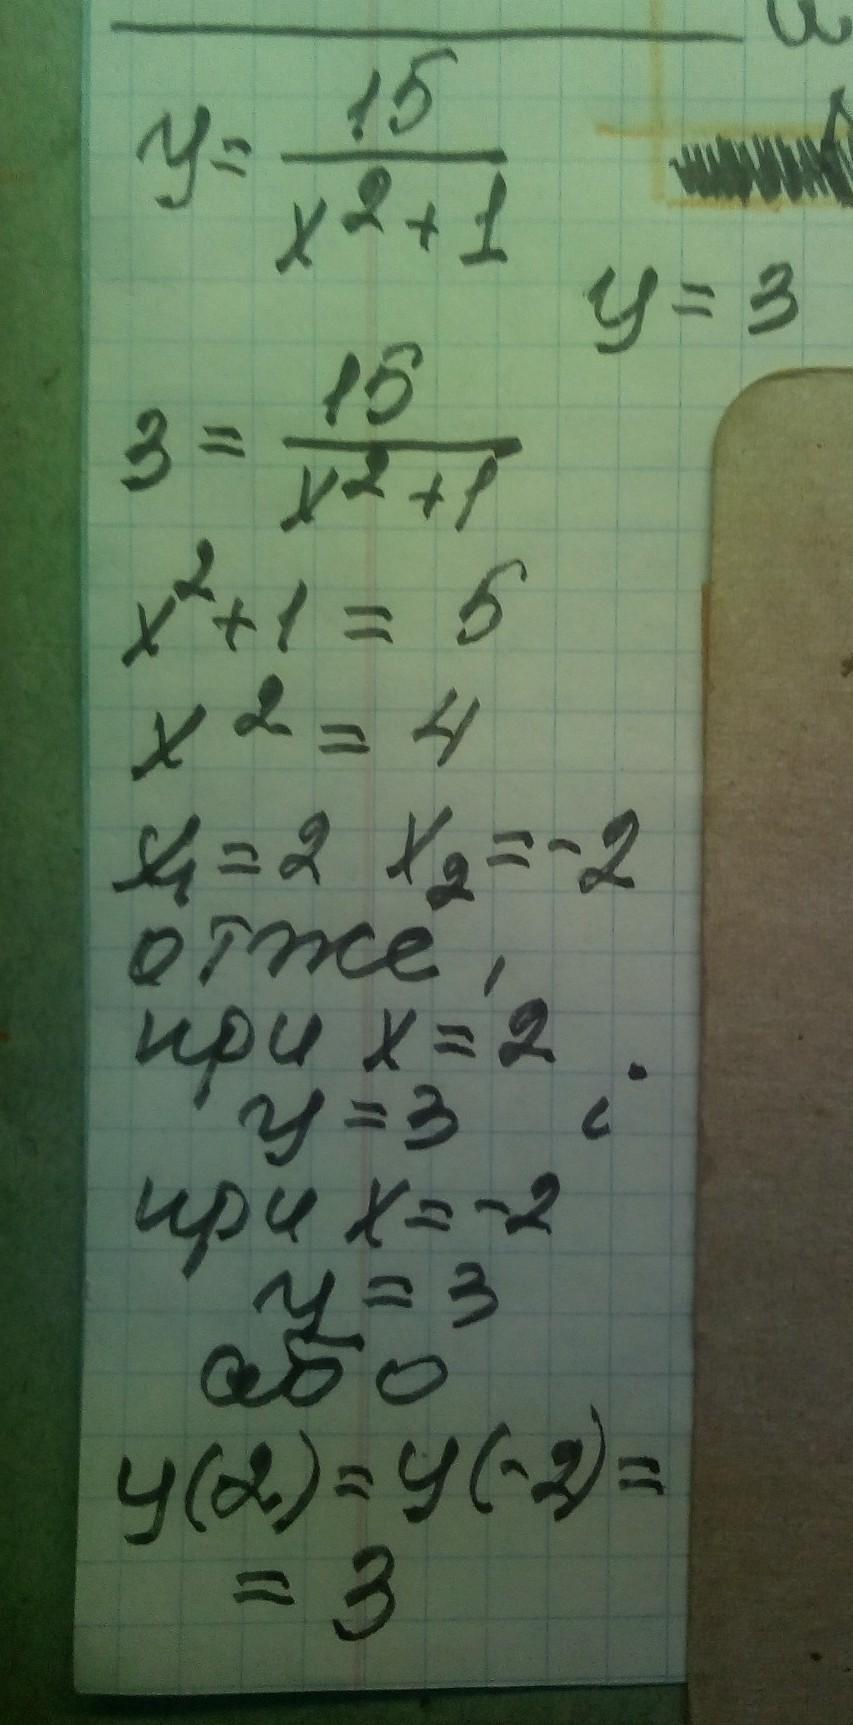 y = 15 / (x² + 1)
y = 3
3 = 15 / (x² + 1)
x² + 1 = 5
x² = 4
x₁ = 2 x₂ = -2
отже,
при x = 2
y = 3 і
при x = -2
y = 3
або
y(2) = y(-2) =
= 3